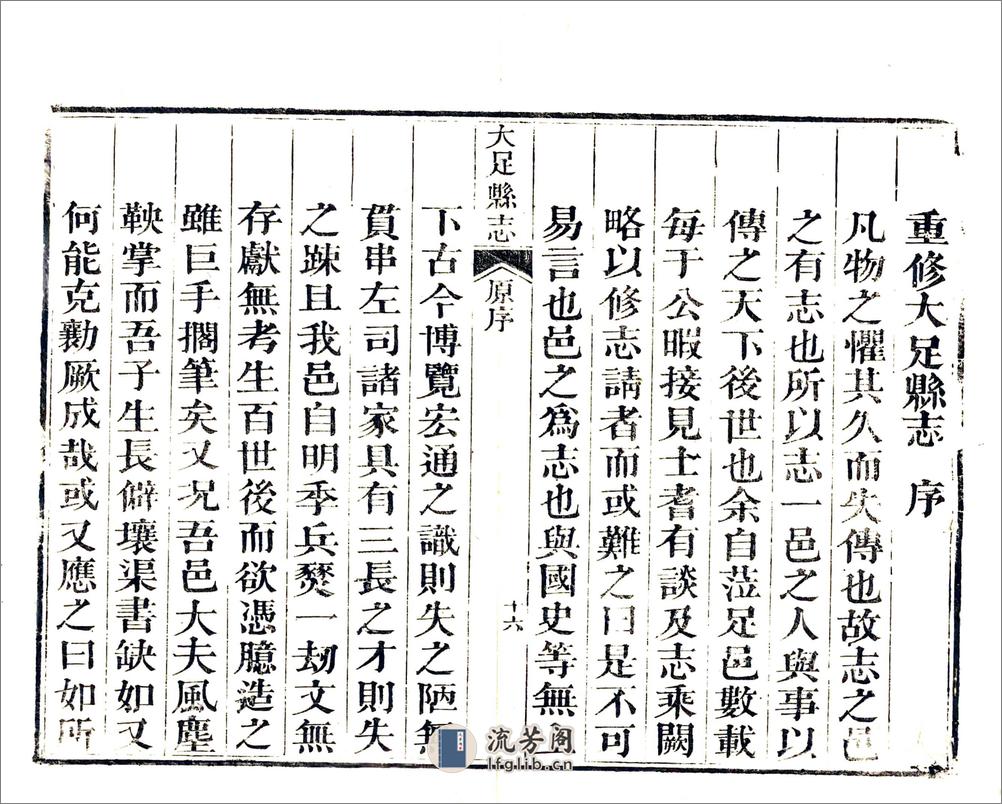 重修大足縣志　序
凡物之懼其久而失傳也故志之邑
之有志也所以志一邑之人與事以
傳之天下後世也余自蒞足邑數載
每于公暇接見士耆有談及志乘闕
略以修志請者而或難之曰是不可
易言也邑之爲志也與國史等無
大足縣志　原序　十六
下古今博覽宏通之識則失之陋無
貫串左司諸家具有三長之才則失
之踈且我邑自明季兵燹一刼文無
存獻無考生百世後而欲憑臆造之
雖巨手擱筆矣又况吾邑大夫風塵
鞅掌而吾子生長僻壤渠書缺如又
何能克勷厥成哉或又應之曰如所
流芳阁
lfglib.cn